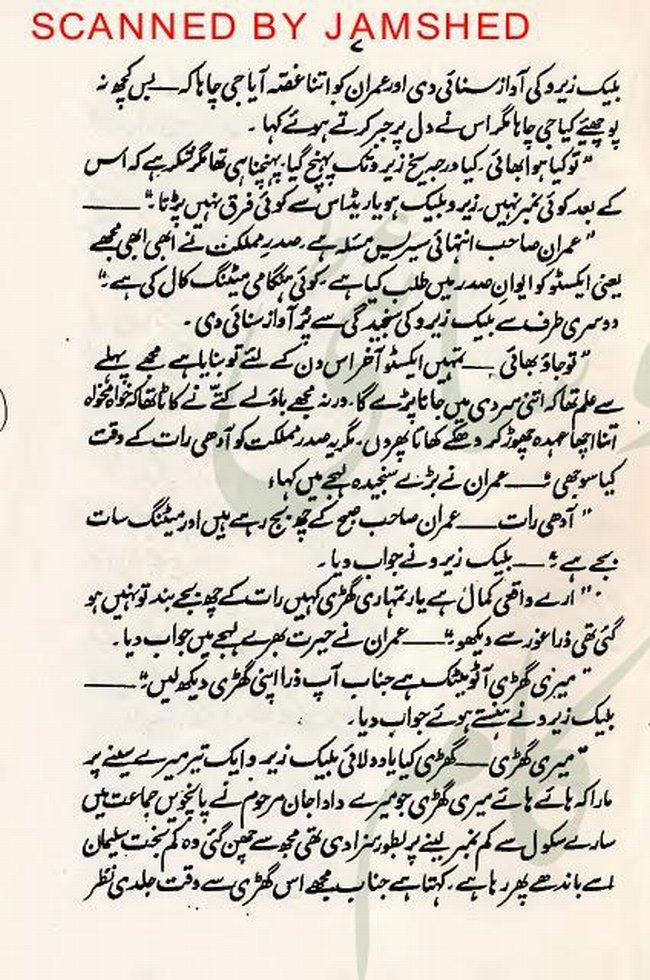 SCANNED BY JAMSHED
۷
بلیک زیرو کی آواز سنائی دی اور عمران کو اتنا غصہ آیا جی چاہا کہ — بس کچھ نہ
پوچھیئے کیا جی چاہا مگر اس نے دل پر جبر کرتے ہوئے کہا ۔
" تو کیا ہوا بھائی ۔ کیا درجہ سخ زیرو تک پہنچ گیا۔ پہنچنا ہی تھا مگر شکر ہے کہ اس
کے بعد کوئی نمبر نہیں ۔ زیرو بلیک ہو یا ریڈ اس سے کوئی فرق نہیں پڑتا ۔" —
" عمران صاحب انتہائی سیریس مسئلہ ہے ۔ صدر مملکت نے ابھی ابھی مجھے
یعنی ایکسٹو کو ایوان صدر میں طلب کیا ہے ۔ کوئی ہنگامی میٹنگ کال کی ہے ۔"
دوسری طرف سے بلیک زیرو کی سنجیدگی سے پُر آواز سنائی دی ۔
" تو جاؤ بھائی — تمہیں ایکسٹو آخر اس دن کے لئے تو بنایا ہے مجھے پہلے
سے علم تھا کہ اتنی سردی میں جانا پڑے گا ۔ ورنہ مجھے باؤلے کتے نے کاٹا تھا کہ خواہ مخواہ
اتنا اچھا عہدہ چھوڑ کر دھکے کھاتا پھروں ۔ مگر یہ صدر مملکت کو آدھی رات کے وقت
کیا سوجھی ؟ — عمران نے بڑے سنجیدہ لہجے میں کہا ۔
" آدھی رات — عمران صاحب صبح کے چھ بج رہے ہیں اور میٹنگ سات
بجے ہے ۔" — بلیک زیرو نے جواب دیا ۔
" ارے واقعی کمال ہے یار تمہاری گھڑی کہیں رات کے چھ بجے بند تو نہیں ہو
گئی تھی ذرا غور سے دیکھو ۔" — عمران نے حیرت بھرے لہجے میں جواب دیا ۔
" میری گھڑی آٹومیٹک ہے جناب آپ ذرا اپنی گھڑی دیکھ لیں ۔" —
بلیک زیرو نے ہنستے ہوئے جواب دیا ۔
" میری گھڑی — گھڑی کیا یاد دلائی بلیک زیرو ایک تیر میرے سینے پر
مارا کہ ہائے ہائے میری گھڑی جو میرے دادا جان مرحوم نے پانچویں جماعت میں
سارے سکول سے کم نمبر لینے پر بطور سزا دی تھی مجھ سے چھن گئی وہ کم بخت سلیمان
اسے باندھے پھر رہا ہے ۔ کہتا ہے جناب مجھے اس گھڑی سے وقت جلدی نظر